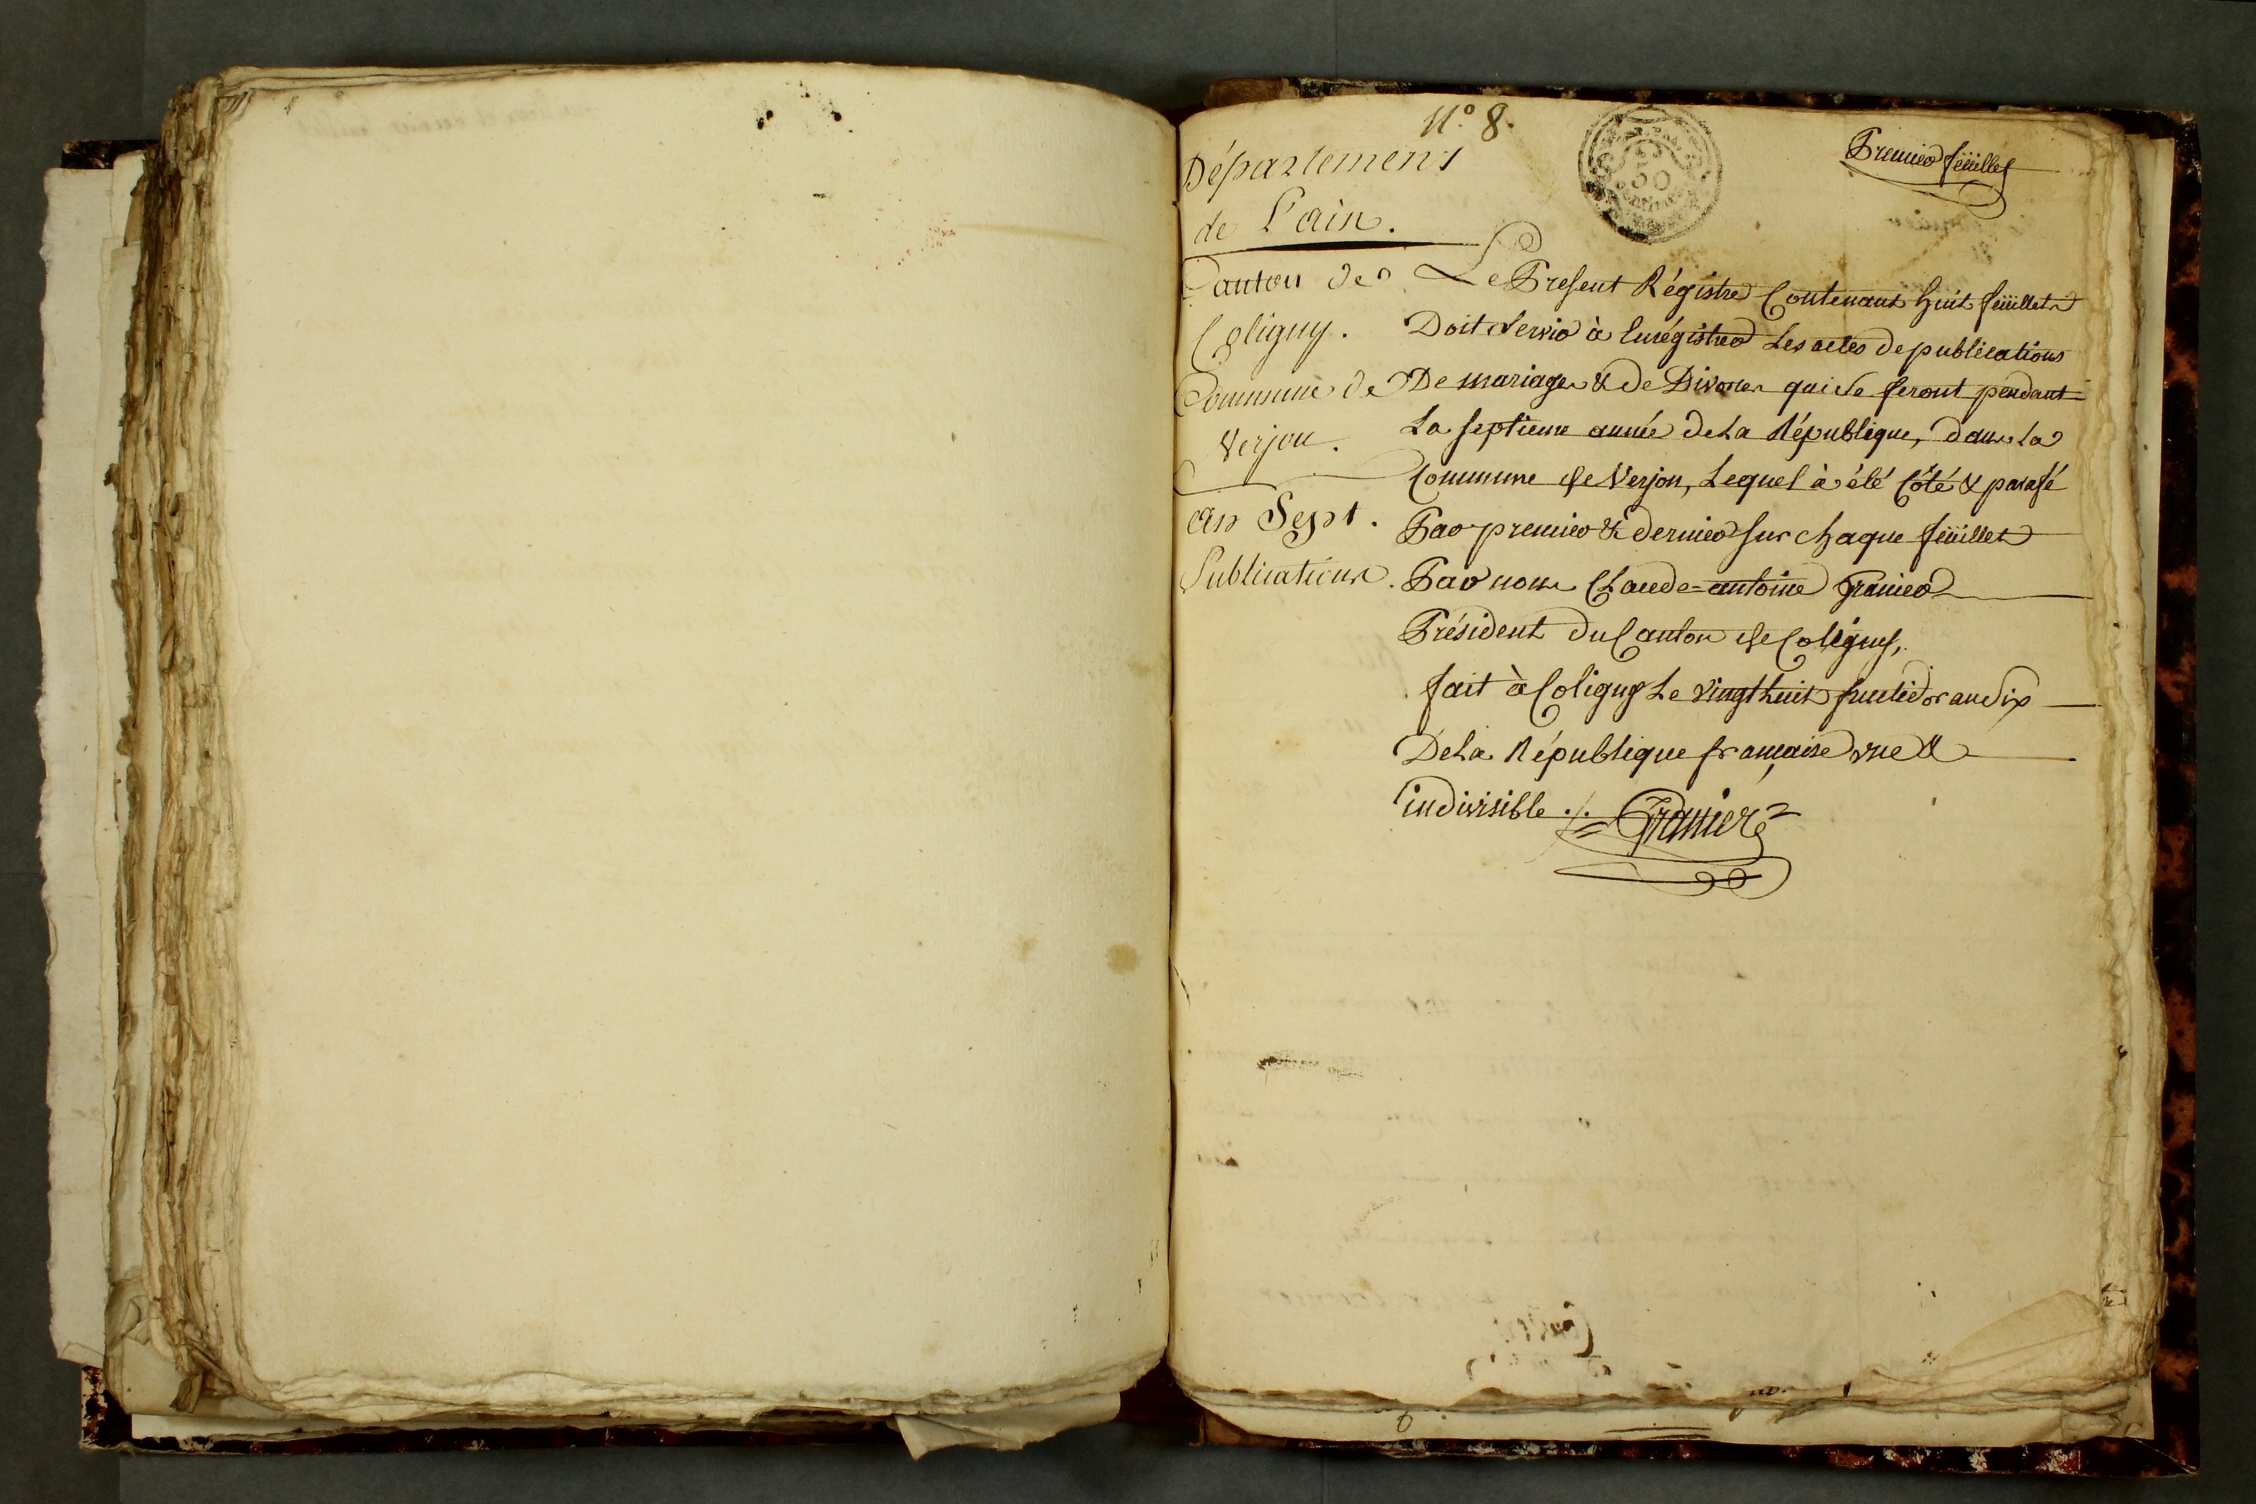 N.° 8.
Premier feüillet
Département
de L'ain.
Canton de
Coligny.
Commune de
Verjon.
an Sept.
Publications.
Le Présent Régistre Contenant huit feüillets
Doit Servir à Enrégistrer Les actes de publications
De mariages & de Divorces qui Se feront pendant
La septieme année de La République, dans la
Commune de Verjon, Lequel à été Côté & parafé
Par premier & dernier sur chaque feüillet
Par nous Claude=antoine Granier
Président du Canton de Coligny,
fait à Coligny Le vingt huit fructidor an Six
De La République française une &
indivisible ./.
Granier
50